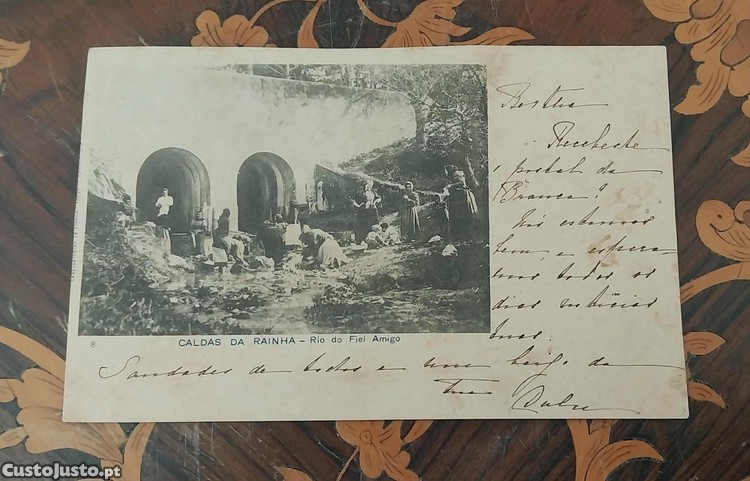 Bertha
Recebeste
o postal da
Branca?
Nós estamos
bem, e espera-
mos todos os
dias noticias
tuas.
8
CALDAS DA RAINHA – Rio do Fiel Amigo
Saudades de todos e um beijo da
tua
CustoJusto.pt